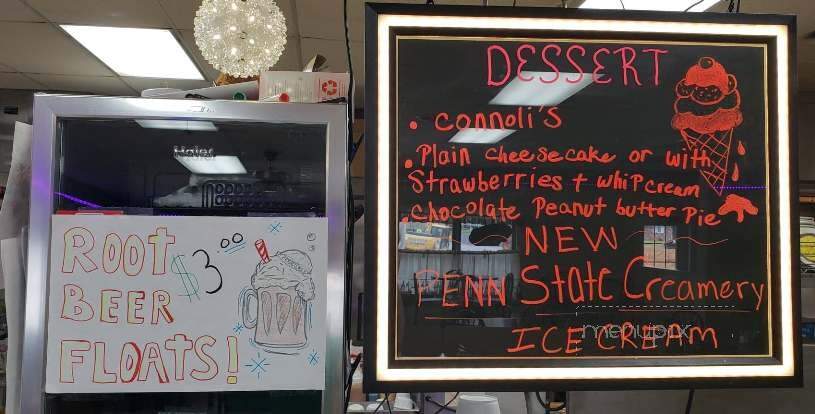 Haier
ROOT
BEER
FLOATS!
$3.00
DESSERT
• Connoli's
• Plain cheesecake or with
Strawberries + whip cream
• chocolate Peanut butter Pie
~ NEW ~
PENN State Creamery
ICE CREAM
menupix